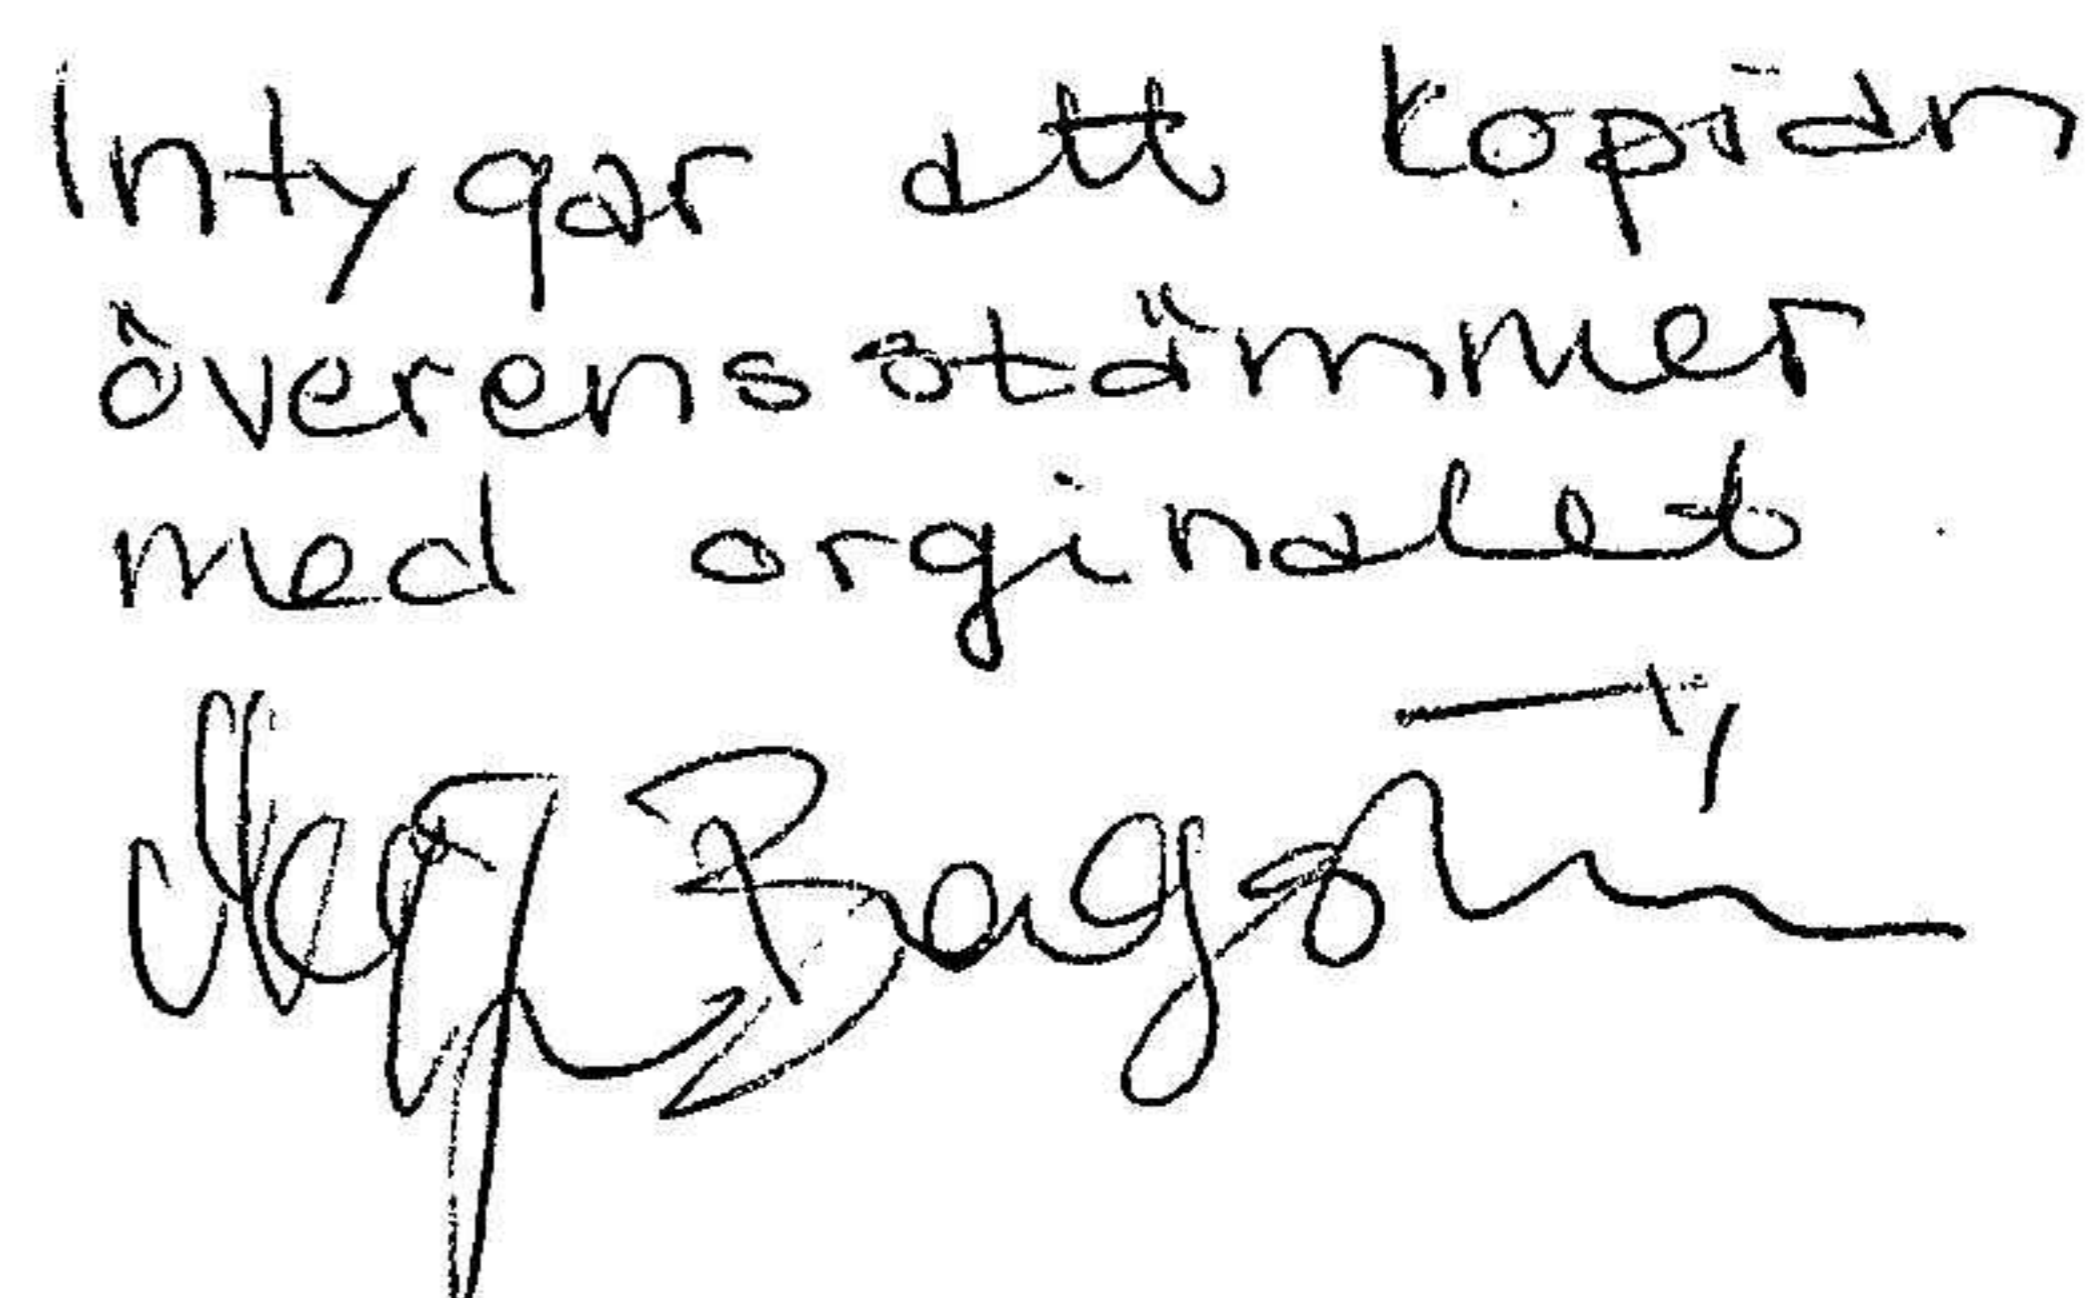 Intygar att kopian
överensstämmer
med orginalet